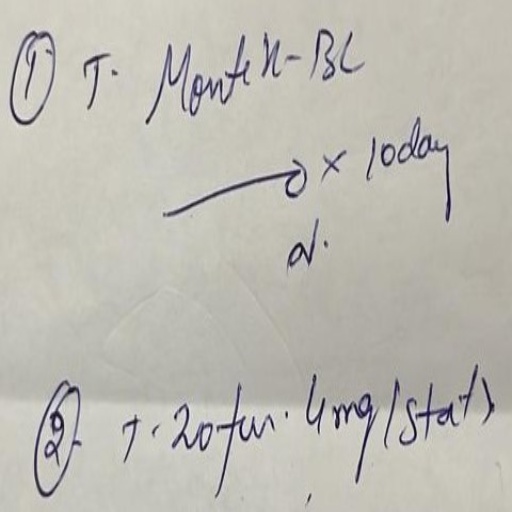 ① T. Montek-BC
→ 0 x 10 day
② T. 20fer. 4mg (stat)